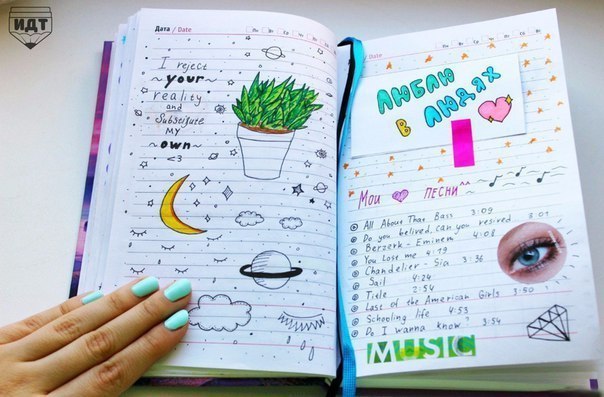 ИДТ
Дата / Date
Пн Вт Ср Чт Пт Сб Вс
I reject
~your~
reality
and
Substitute
MY
~own~
<3
Date
Пн Вт Ср Чт Пт Сб Вс
ЛЮБЛЮ
В ЛЮДЯХ
Мои ПЕСНИ^^
All About That Bass 3:09
Do you belived, can you resived 3:01
Berzerk - Eminem 4:08
You Lose me 4:19
Chandelier - Sia 3:36
Sail 4:24
Title 2:54
Last of the American Girls 3:50
Schooling life 4:53
Do I wanna know? 3:54
MUSIC